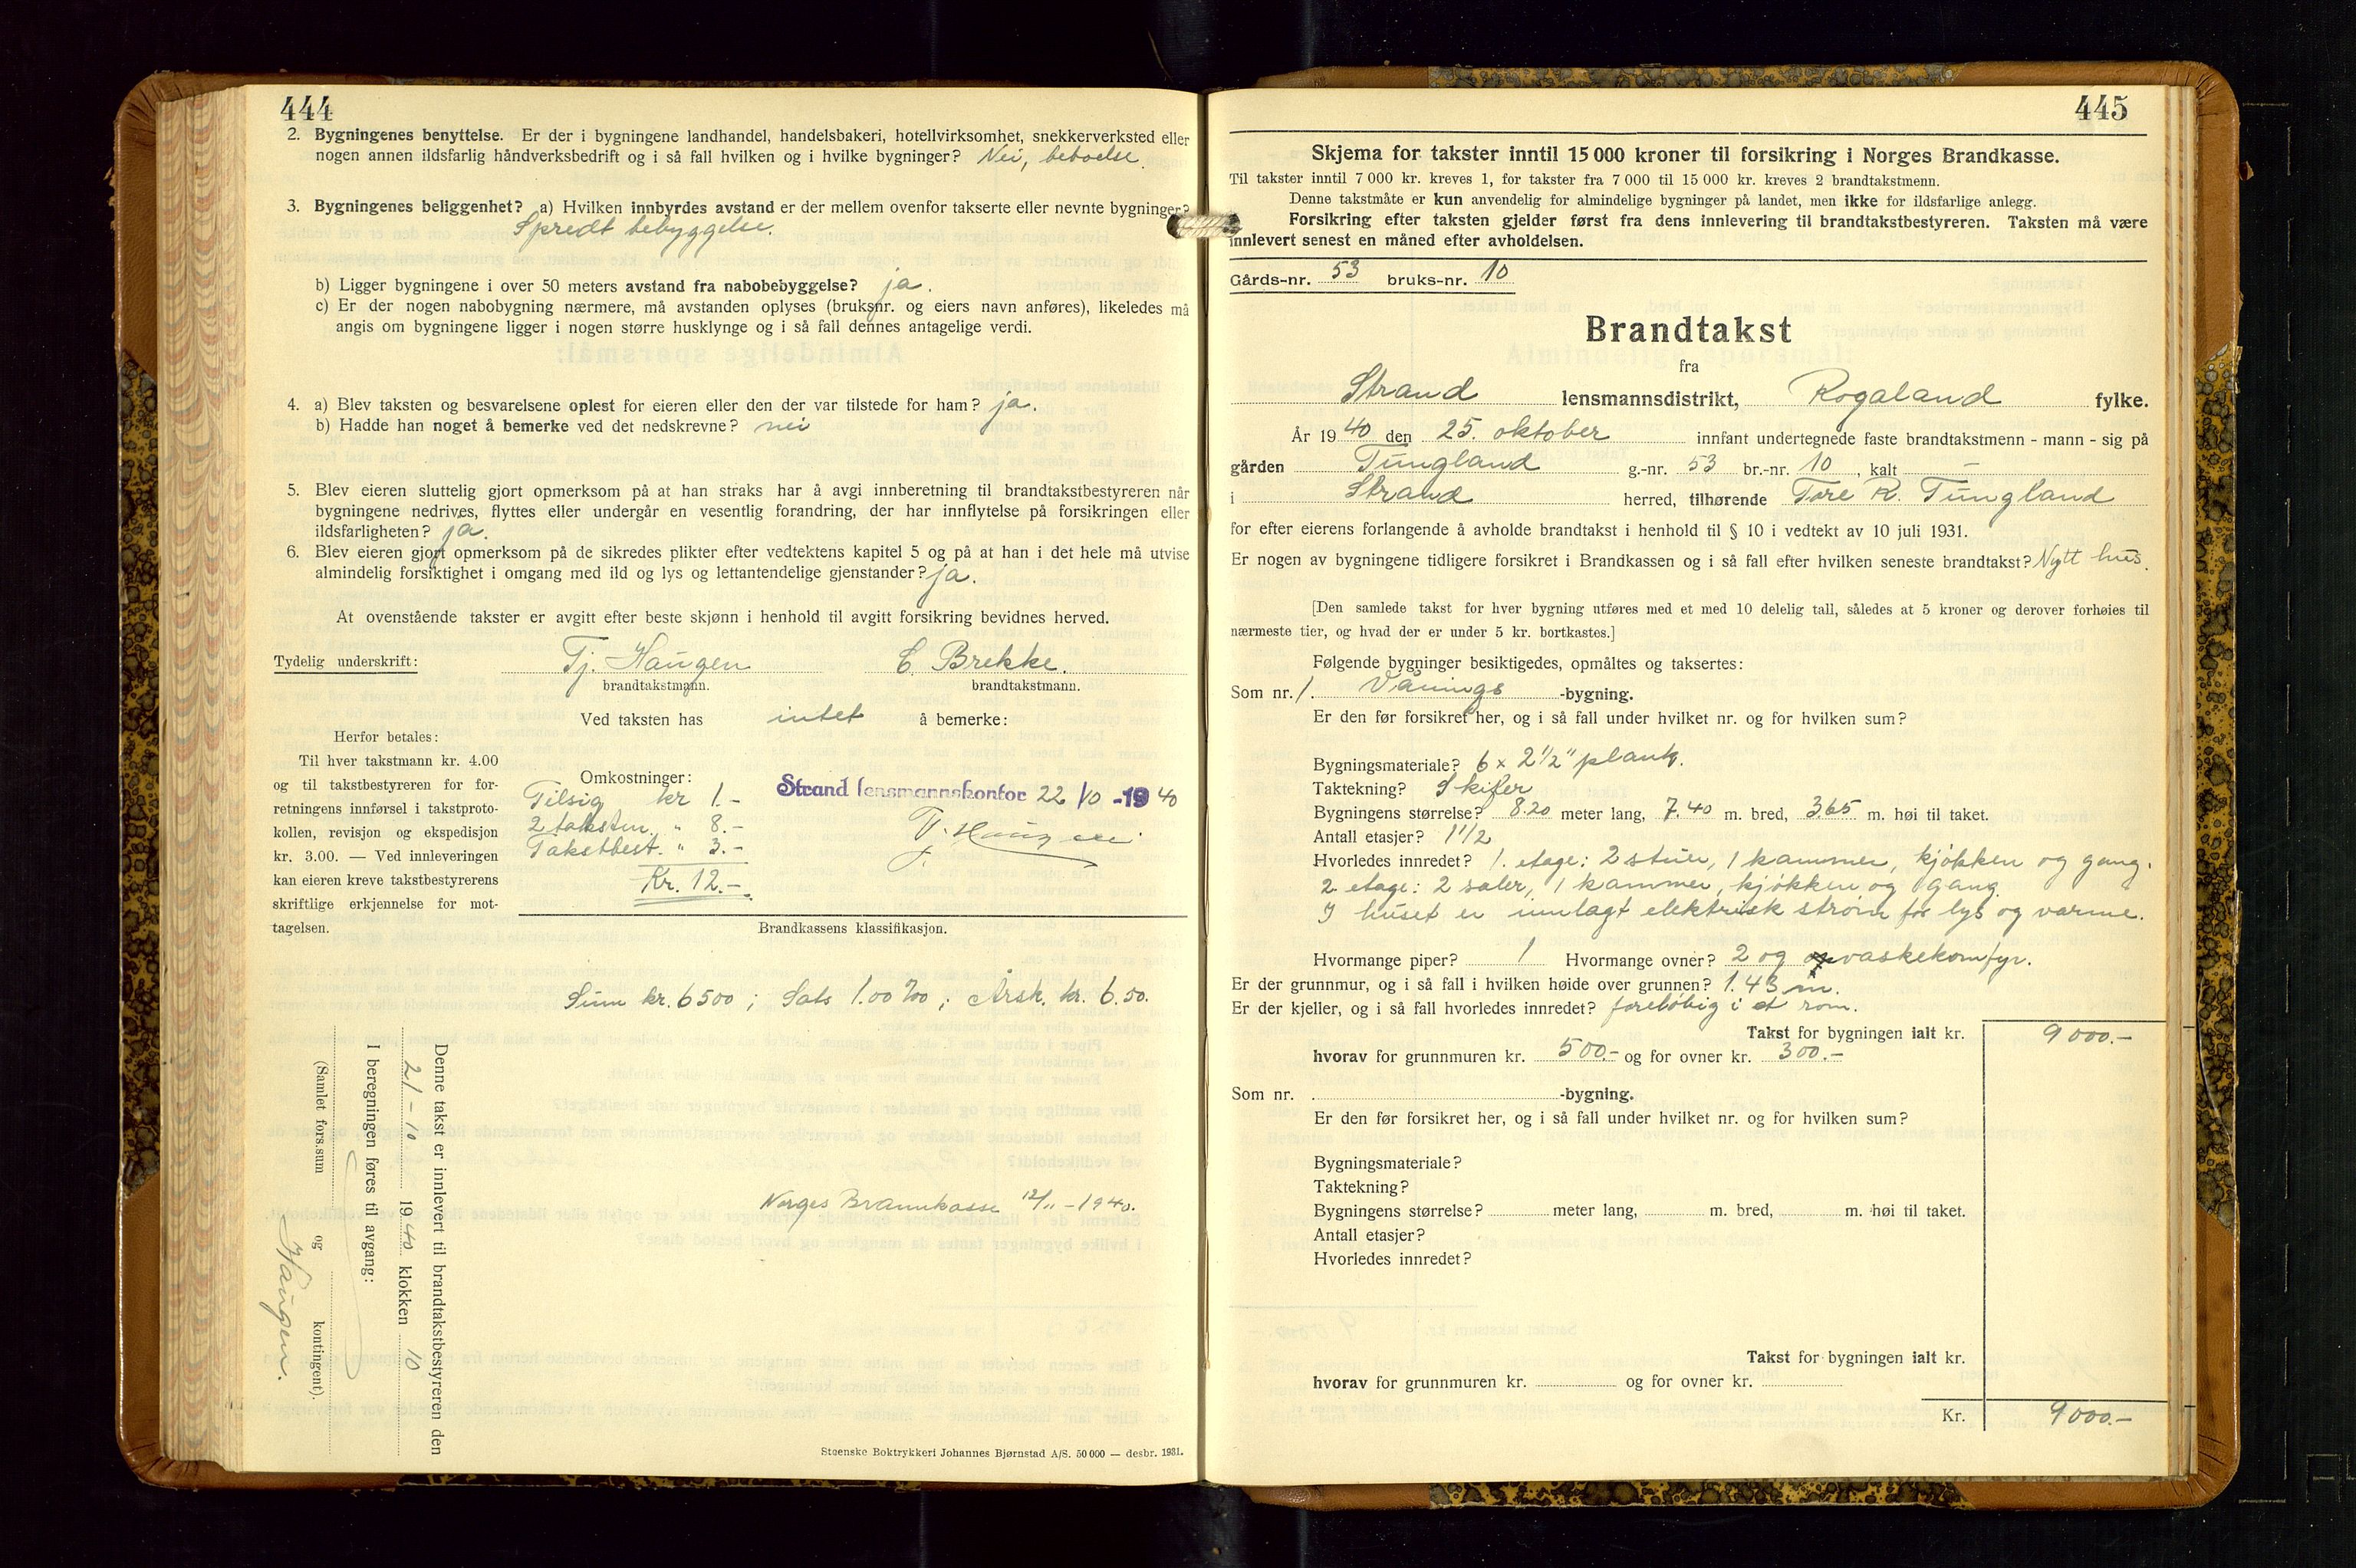 444
2. Bygningenes benyttelse. Er der i bygningene landhandel, handelsbakeri, hotellvirksomhet, snekkerverksted eller
nogen annen ildsfarlig håndverksbedrift og i så fall hvilken og i hvilke bygninger? Nei, beboelse.
3. Bygningenes beliggenhet? a) Hvilken innbyrdes avstand er der mellem ovenfor takserte eller nevnte bygninger?
Spredt bebyggelse.
b) Ligger bygningene i over 50 meters avstand fra nabobebyggelse? ja.
c) Er der nogen nabobygning nærmere, må avstanden oplyses (bruksnr. og eiers navn anføres), likeledes må
angis om bygningene ligger i nogen større husklynge og i så fall dennes antagelige verdi.
4. a) Blev taksten og besvarelsene oplest for eieren eller den der var tilstede for ham? ja.
b) Hadde han noget å bemerke ved det nedskrevne? nei
5. Blev eieren sluttelig gjort opmerksom på at han straks har å avgi innberetning til brandtakstbestyreren når
bygningene nedrives, flyttes eller undergår en vesentlig forandring, der har innflytelse på forsikringen eller
ildsfarligheten? ja.
6. Blev eieren gjort opmerksom på de sikredes plikter efter vedtektens kapitel 5 og på at han i det hele må utvise
almindelig forsiktighet i omgang med ild og lys og lettantendelige gjenstander? ja.
At ovenstående takster er avgitt efter beste skjønn i henhold til avgitt forsikring bevidnes herved.
Tydelig underskrift: Tj. Haugen C. Brekke.
brandtakstmann. brandtakstmann.
Ved taksten has intet å bemerke:
Herfor betales:
Til hver takstmann kr. 4.00
og til takstbestyreren for for-
retningens innførsel i takstproto-
kollen, revisjon og ekspedisjon
kr. 3.00. — Ved innleveringen
kan eieren kreve takstbestyrerens
skriftlige erkjennelse for mot-
tagelsen.
Omkostninger:
Tilsig kr 1.-
2 takstm. " 8.-
Takstbest. " 3.-
Kr. 12.-
Strand lensmannskontor 22/10-1940
T. Haugen
Brandkassens klassifikasjon.
Sum kr. 6500; Sats 1.00 ‰; Årsk. kr. 6.50.
Norges Brannkasse 12/11-1940.
Denne takst er innlevert til brandtakstbestyreren den
21-10 1940 klokken 10
I beregningen føres til avgang:
(Samlet fors.sum og kontingent).
Haugen.
Steenske Boktrykkeri Johannes Bjørnstad A/S. 50 000 — desbr. 1931.
445
Skjema for takster inntil 15 000 kroner til forsikring i Norges Brandkasse.
Til takster inntil 7 000 kr. kreves 1, for takster fra 7 000 til 15 000 kr. kreves 2 brandtakstmenn.
Denne takstmåte er kun anvendelig for almindelige bygninger på landet, men ikke for ildsfarlige anlegg.
Forsikring efter taksten gjelder først fra dens innlevering til brandtakstbestyreren. Taksten må være
innlevert senest en måned efter avholdelsen.
Gårds-nr. 53 bruks-nr. 10
Brandtakst
fra
Strand lensmannsdistrikt, Rogaland fylke.
År 1940 den 25. oktober innfant undertegnede faste brandtakstmenn - mann - sig på
gården Tungland g.-nr. 53 br.-nr. 10, kalt -
i Strand herred, tilhørende Tore R. Tungland
for efter eierens forlangende å avholde brandtakst i henhold til § 10 i vedtekt av 10 juli 1931.
Er nogen av bygningene tidligere forsikret i Brandkassen og i så fall efter hvilken seneste brandtakst? Nytt hus.
[Den samlede takst for hver bygning utføres med et med 10 delelig tall, således at 5 kroner og derover forhøies til
nærmeste tier, og hvad der er under 5 kr. bortkastes.]
Følgende bygninger besiktigedes, opmåltes og taksertes:
Som nr. 1. Vånings -bygning.
Er den før forsikret her, og i så fall under hvilket nr. og for hvilken sum?
Bygningsmateriale? 6 x 2 1/2" plank.
Taktekning? Skifer
Bygningens størrelse? 8.20 meter lang, 7.40 m. bred, 3.65 m. høi til taket.
Antall etasjer? 1 1/2
Hvorledes innredet? 1. etage: 2 stuer, 1 kammer, kjøkken og gang.
2. etage: 2 saler, 1 kammer, kjøkken og gang.
I huset er innlagt elektrisk strøm for lys og varme.
Hvormange piper? 1 Hvormange ovner? 2 og vaskekomfyr.
Er der grunnmur, og i så fall i hvilken høide over grunnen? 1.43 m.
Er der kjeller, og i så fall hvorledes innredet? foreløbig i et rom.
Takst for bygningen ialt kr. 9000.-
hvorav for grunnmuren kr. 500.- og for ovner kr. 300.-
Som nr. -bygning.
Er den før forsikret her, og i så fall under hvilket nr. og for hvilken sum?
Bygningsmateriale?
Taktekning?
Bygningens størrelse? meter lang, m. bred, m. høi til taket.
Antall etasjer?
Hvorledes innredet?
Takst for bygningen ialt kr.
hvorav for grunnmuren kr. og for ovner kr.
Kr. 9000.-